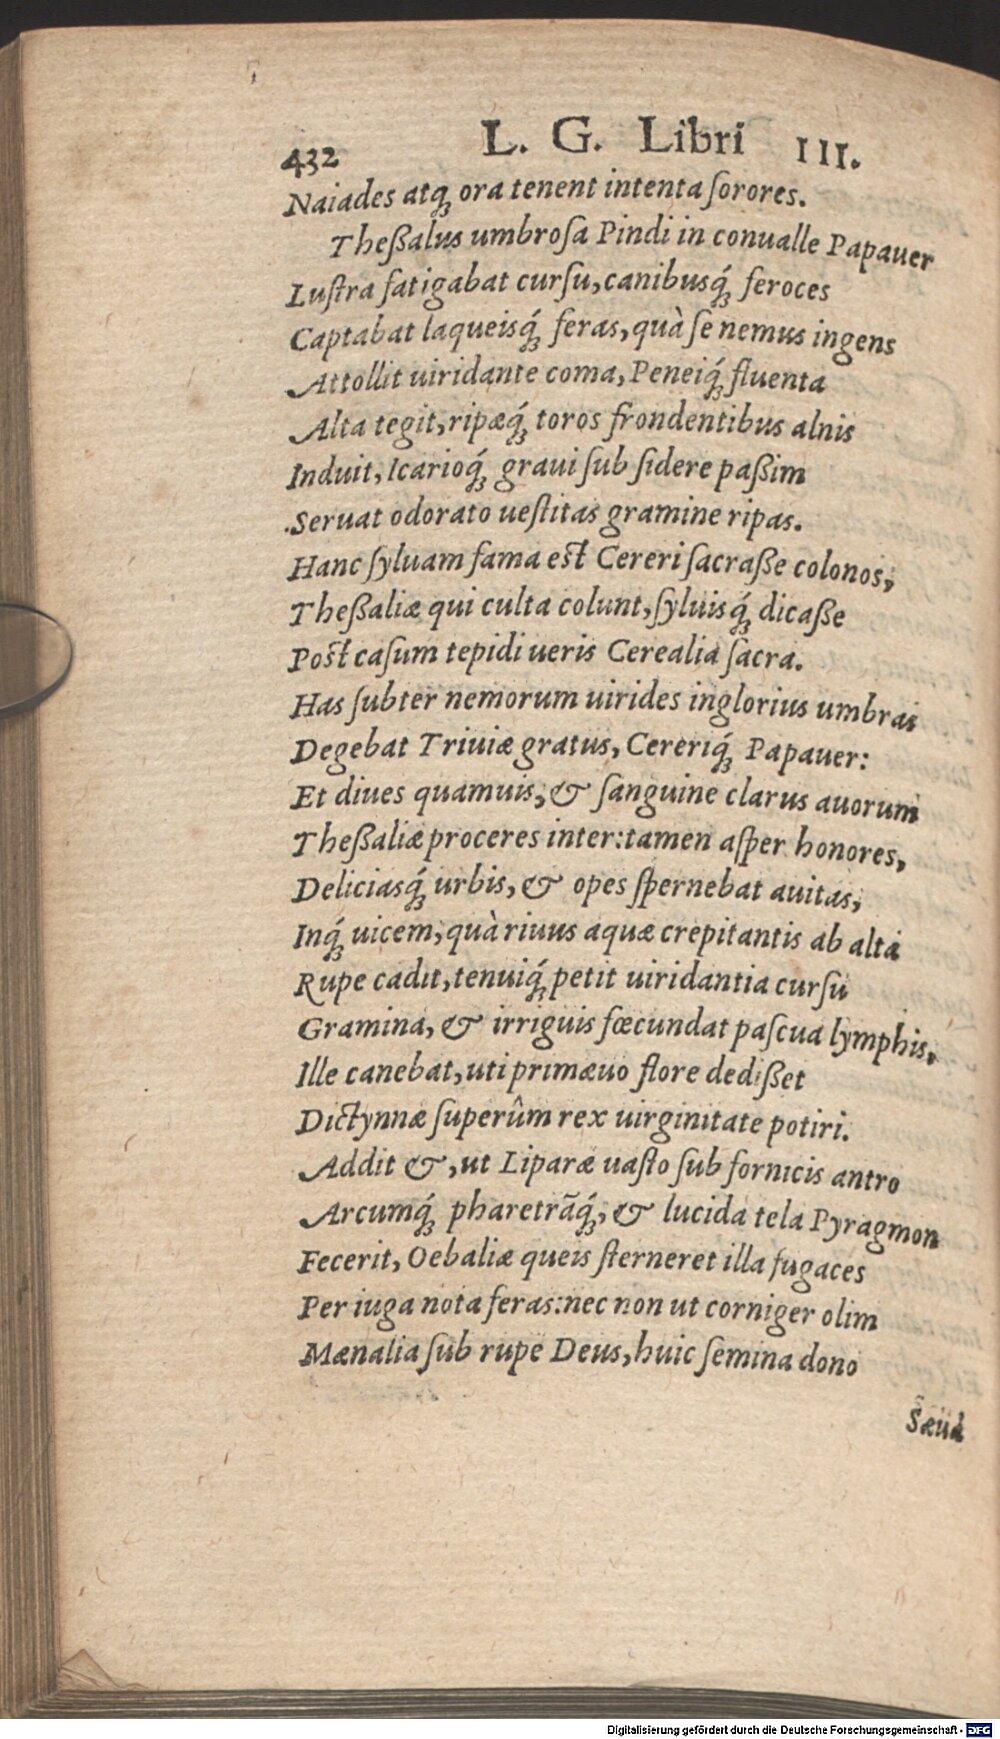 432 L. G. Libri III.
Naiades atq́; ora tenent intenta ſorores.
Theßalus umbroſa Pindi in conualle Papauer
Luſtra fatigabat curſu, canibusq́; feroces
Captabat laqueisq́; feras, quà ſe nemus ingens
Attollit uiridante coma, Peneiq́; fluenta
Alta tegit, ripæq́; toros frondentibus alnis
Induit, Icarioq́; graui ſub ſidere paßim
Seruat odorato ueſtitas gramine ripas.
Hanc ſyluam fama eſt Cereri ſacraße colonos,
Theßaliæ qui culta colunt, ſyluisq́; dicaße
Poſt caſum tepidi ueris Cerealia ſacra.
Has ſubter nemorum uirides inglorius umbras
Degebat Triuiæ gratus, Cereriq́; Papauer:
Et diues quamuis, & ſanguine clarus auorum
Theßaliæ proceres inter: tamen aſper honores,
Deliciasq́; urbis, & opes ſpernebat auitas,
Inq́; uicem, quà riuus aquæ crepitantis ab alta
Rupe cadit, tenuiq́; petit uiridantia curſu
Gramina, & irriguis fœcundat paſcua lymphis,
Ille canebat, uti primæuo flore dedißet
Dictynnæ ſuperûm rex uirginitate potiri.
Addit &, ut Liparæ uaſto ſub fornicis antro
Arcumq́; pharetrãq́;, & lucida tela Pyragmon
Fecerit, Oebaliæ queis ſterneret illa fugaces
Per iuga nota feras: nec non ut corniger olim
Mænalia ſub rupe Deus, huic ſemina dono
Sæua
Digitalisierung gefördert durch die Deutsche Forschungsgemeinschaft - DFG